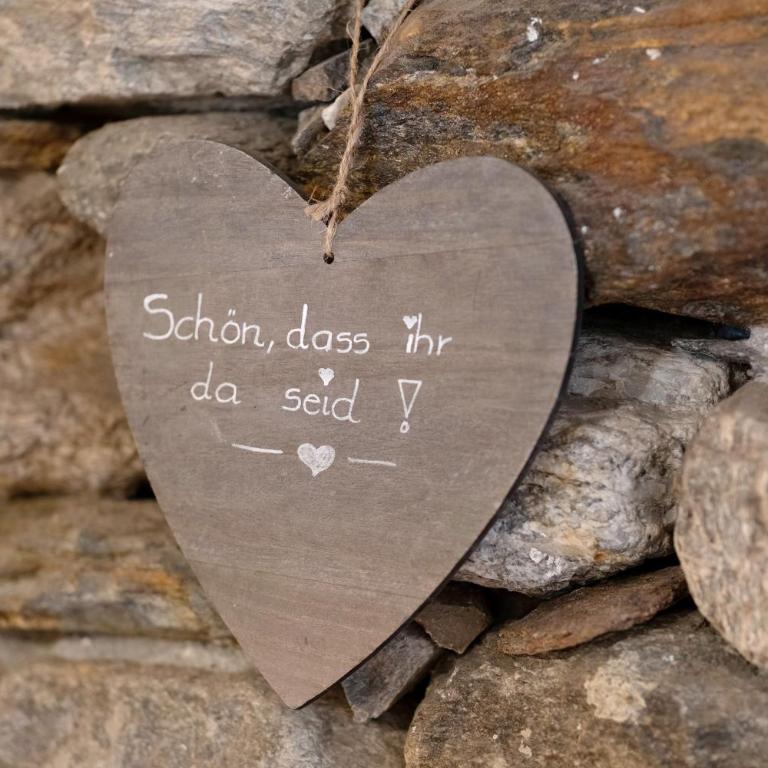 Schön, dass ihr
da seid !